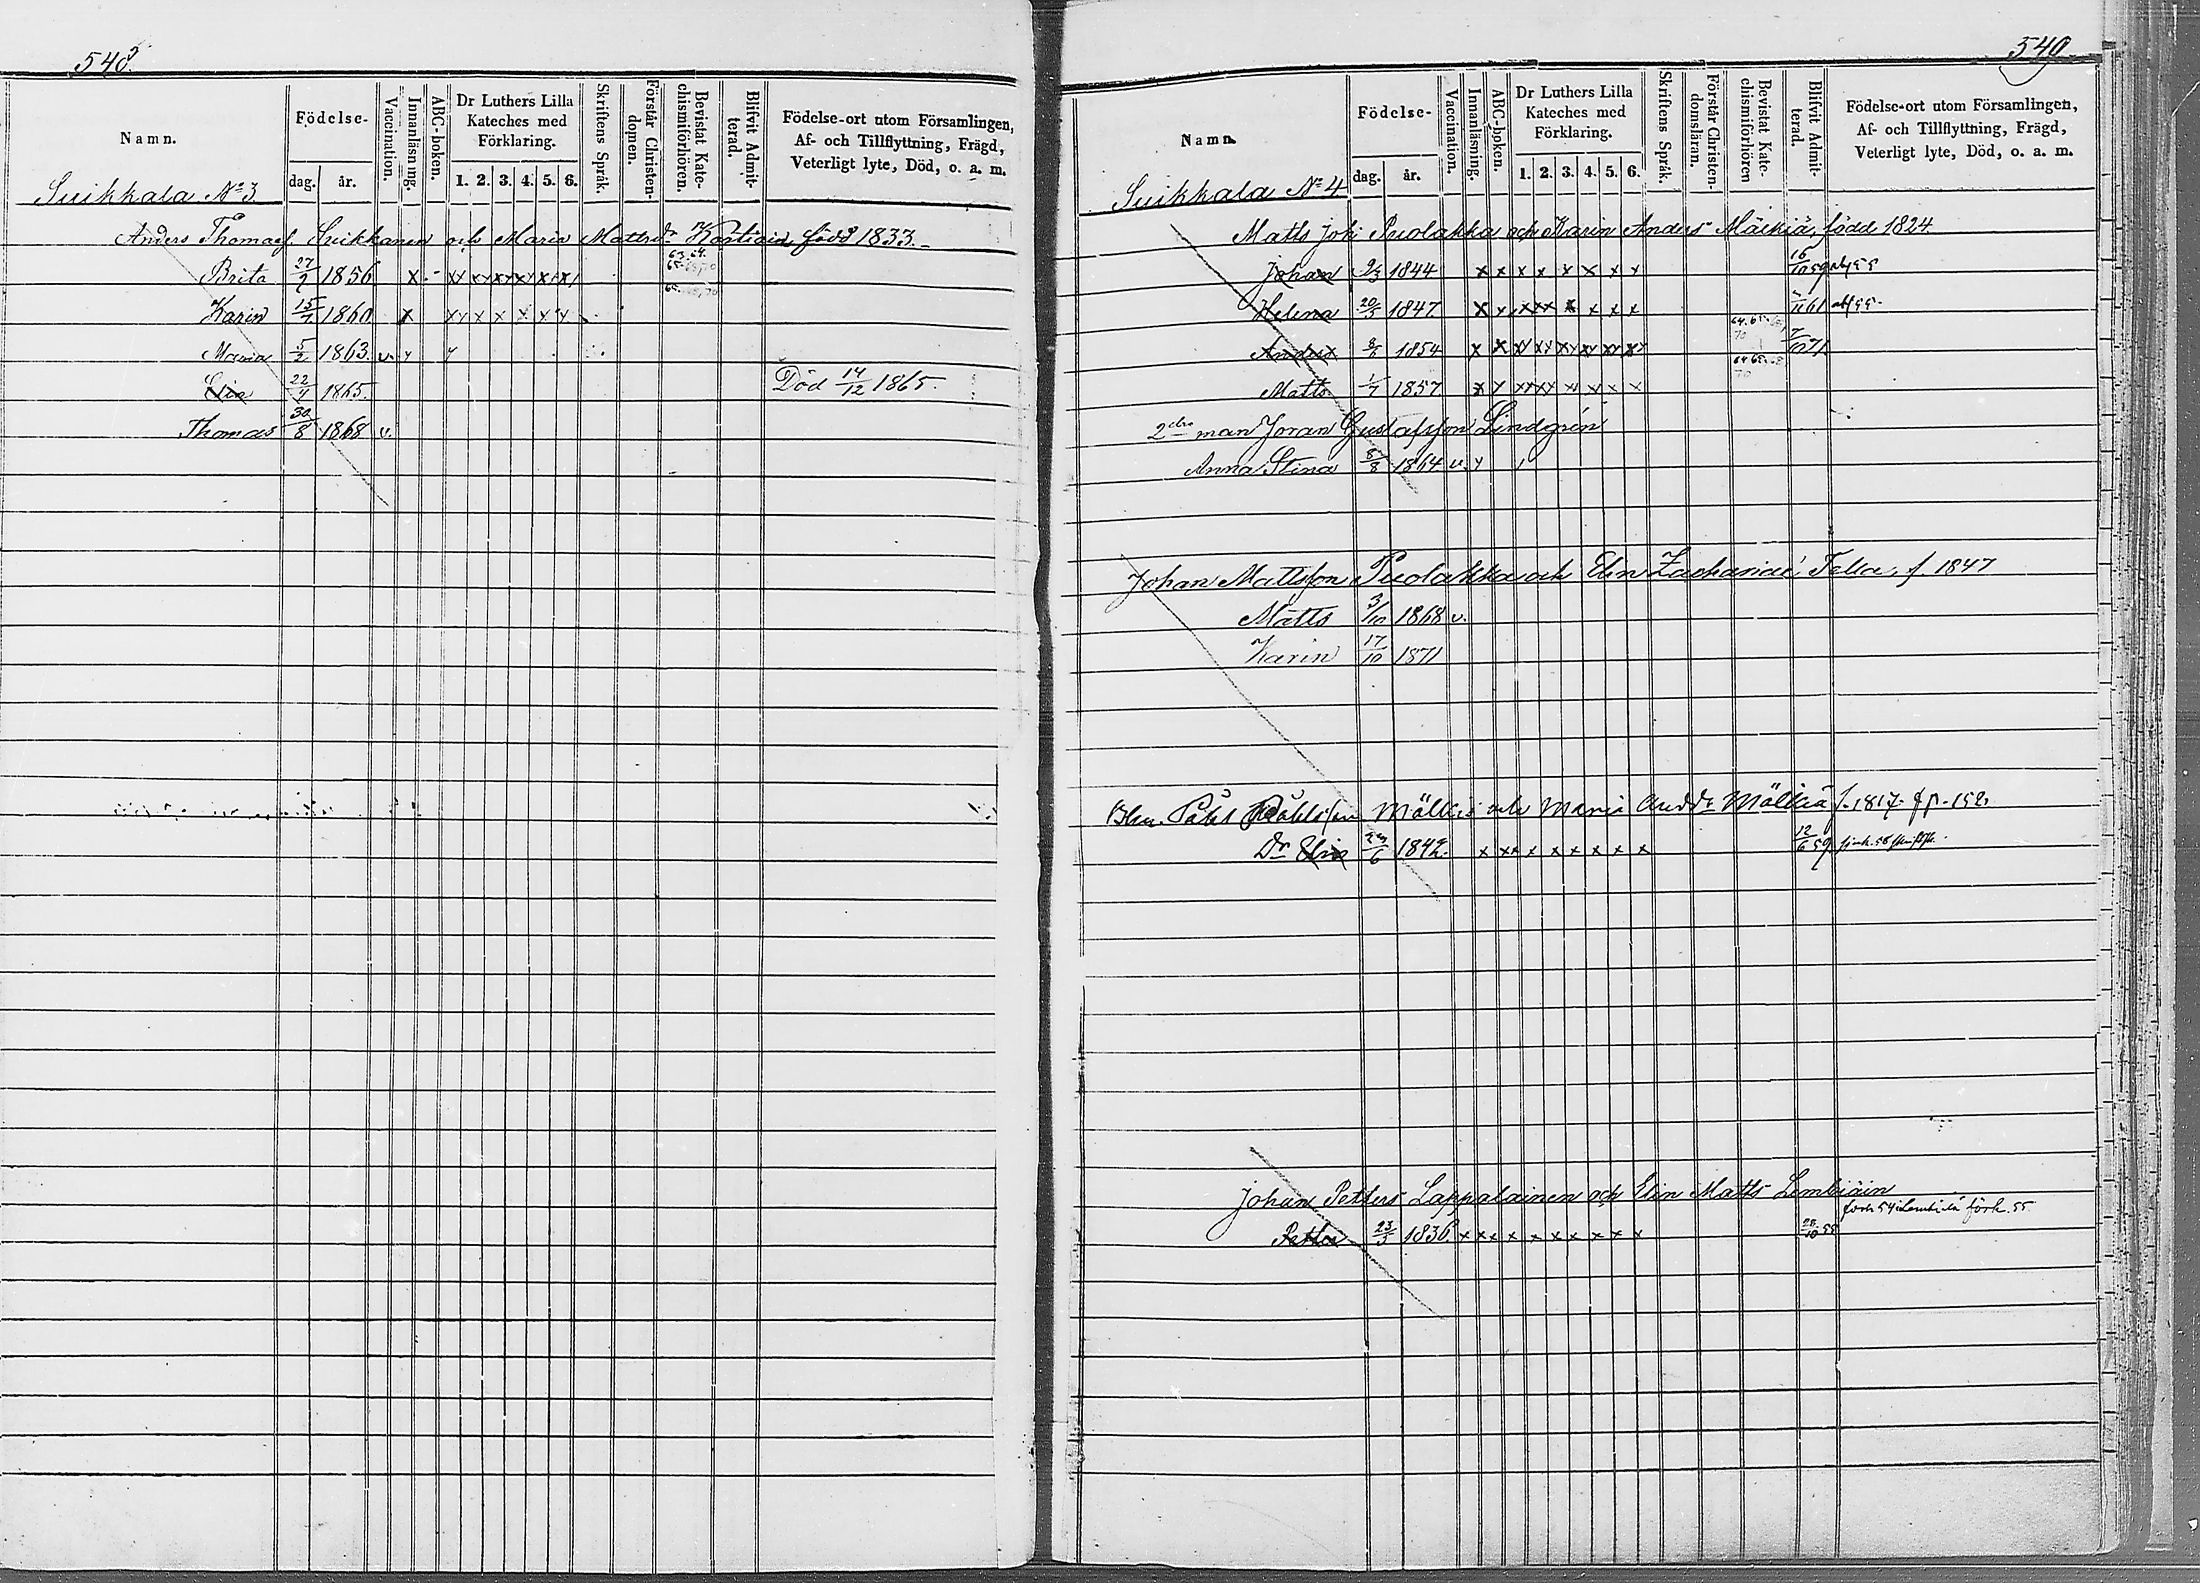 548.
Namn. Födelse- dag. år. Vaccination. Innanläsning. ABC-boken. Dr Luthers Lilla Kateches med Förklaring. 1. 2. 3. 4. 5. 6. Skriftens Språk. Förstår Christen-domen. Bevistat Kate-chismiförhören. Blifvit Admit-terad. Födelse-ort utom Församlingen, Af- och Tillflyttning, Frägd, Veterligt lyte, Död, o. a. m.
Suikkala No 3
Anders Thomasf. Suikkanen och Maria Mattsdr född 1833.
63. 64.
Brita 27/2 1856 x
Karin 15/7 1860 x
Maria 5/2 1863. v.
Elin 22/4 1865. Död 14/12 1865.
Thomas 30/8 1868 v.
549.
Namn. Födelse- dag. år. Vaccination. Innanläsning. ABC-boken. Dr Luthers Lilla Kateches med Förklaring. 1. 2. 3. 4. 5. 6. Skriftens Språk. Förstår Christen-domsläran. Bevistat Kate-chismiförhören Blifvit Admit-terad. Födelse-ort utom Församlingen, Af- och Tillflyttning, Frägd, Veterligt lyte, Död, o. a. m.
Suikkala No 4
Matts Joh. Puolakka och Karin Anders Mälkiä, född 1824
Johan 1844 x x x x x x x x 16/10 59
Helena 20/5 1847 61
Anders 1854 7/10 71.
Matts 1/7 1857
2dra man Jöran Gustafsson Lindgrén
Anna Stina 8/8 1864 v.
Johan Mattsson Puolakka och Elin Zachariae Telia, f. 1847
Matts 3/10 1868 v.
Karin 17/10 1871
Påhl Påhlsson Mälkiä och Maria Andr Mälkiä f. 1817. fr p. 152.
Dr Elin 1842. 12/6 59
Johan Petters Lappalainen och Elin Matts Lembiäin
förh. 55
Petter 23/3 1836. x x x x x x x x x 28/10 55